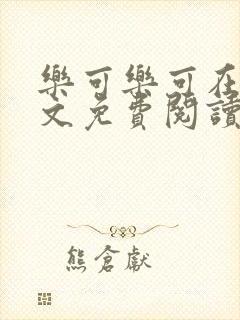 樂可樂可在
文免費閱讀
熊倉獻